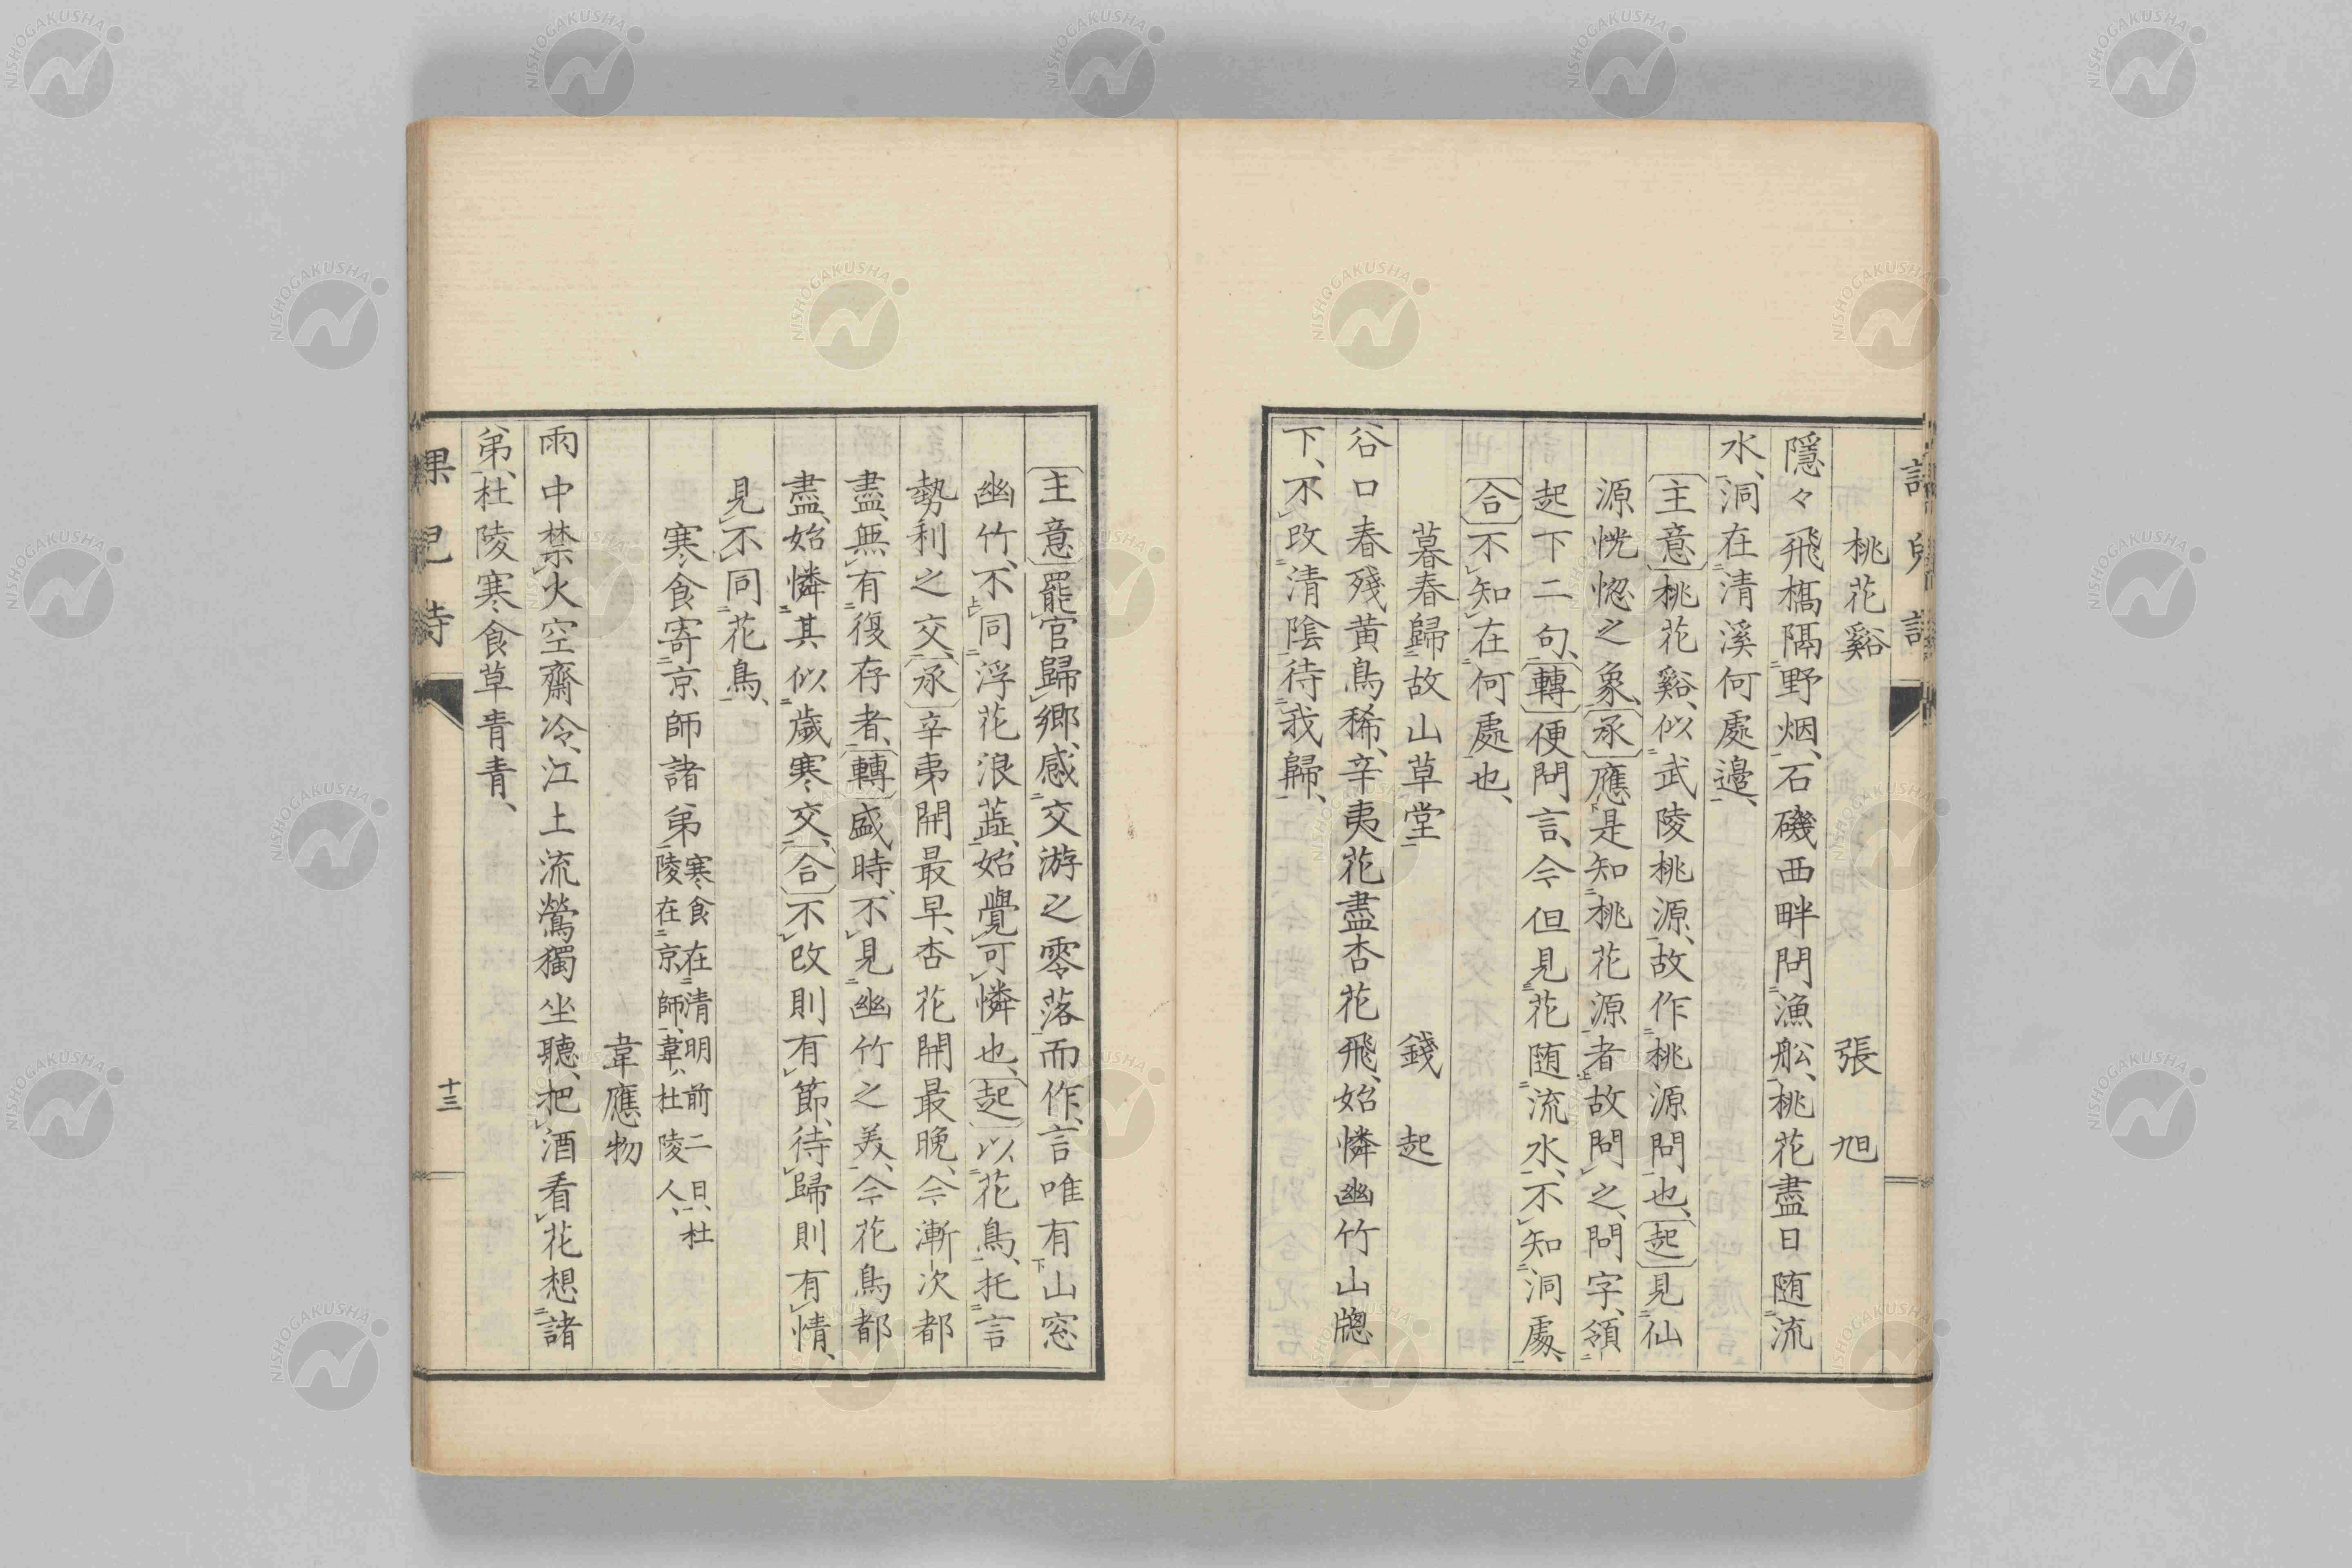 課兒詩
桃花谿　張旭
隱々飛橋隔野烟、石磯西畔問漁舩、桃花盡日随流
水、洞在清溪何處邉、
〔主意〕桃花谿、似武陵桃源、故作桃源問也、〔起〕見仙
源恍惚之象、〔承〕應是知桃花源者故問之、問字、領
起下二句、〔轉〕便問言、今但見花随流水、不知洞處、
〔合〕不知在何處也、
暮春歸故山草堂　錢起
谷口春殘黄鳥稀、辛夷花盡杏花飛、始憐幽竹山牎
下、不改清陰待我歸、
〔主意〕罷官歸郷、感交游之零落而作、言唯有山窓
幽竹、不同浮花浪蕋、始覺可憐也、〔起〕以花鳥、托言
勢利之交、〔承〕辛夷開最早、杏花開最晩、今漸次都
盡、無有復存者、〔轉〕盛時、不見幽竹之美、今花鳥都
盡、始憐其似歲寒交、〔合〕不改則有節、待歸則有情、
見不同花鳥、
寒食寄京師諸弟 寒食在清明前二日、杜
陵在京師、韋、杜陵人、
韋應物
雨中禁火空齋冷、江上流鶯獨坐聽、把酒看花想諸
弟、杜陵寒食草青青、
課兒詩
十三
NISHOGAKUSHA